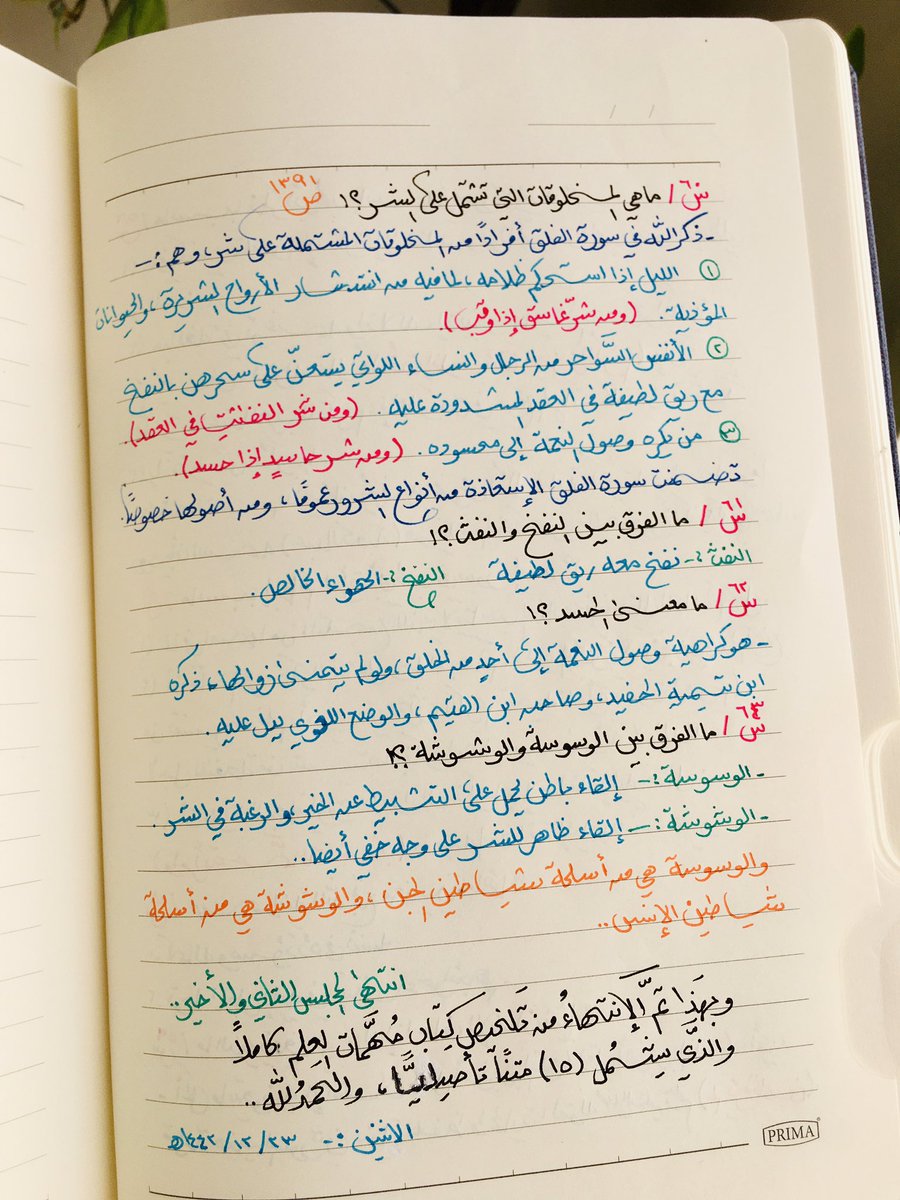 س٦٠/ ماهي المخلوقات التي تشتمل على الشر؟! ص ١٣٩١
- ذكر الله في سورة الفلق أفرادًا من المخلوقات المشتملة على شر، وهم :-
١ الليل إذا استحكم ظلامه، لما فيه من انتشار الأرواح الشريرة، والحيوانات
المؤذية. (ومن شرّ غاسق إذا وقب).
٢ الأنفس السَّواحر من الرجال والنساء اللواتي يستعنّ على سحرهن بالنفخ
مع ريق لطيفة في العقد المشدودة عليه. (ومن شر النفثت في العقد).
٣ من يكره وصول النعمة إلى محسوده. (ومن شر حاسدٍ إذا حسد).
تضمنت سورة الفلق الإستعاذة من أنواع الشرور عمومًا، ومن أصولها خصوصًا.
س٦١/ ما الفرق بين النفخ والنفث؟!
النفث :- نفخ معه ريق لطيفة النفخ :- الهواء الخالص.
س٦٢/ ما معنى الحسد؟!
- هو كراهية وصول النعمة إلى أحدٍ من الخلق، ولو لم يتمنى زوالها، ذكره
ابن تيمية الحفيد، وصاحبه ابن القيم، والوضع اللغوي يدل عليه.
س٦٣/ ما الفرق بين الوسوسة والوشوشة؟!
- الوسوسة :- إلقاء باطن يحمل على التثبيط عن الخير، والرغبة في الشر.
- الوشوشة :- إلقاء ظاهر للشر على وجه خفي أيضا..
والوسوسة هي من أسلحة شياطين الجن، والوشوشة هي من أسلحة
شياطين الإنس..
انتهى المجلس الثاني والأخير..
وبهَذَا تمَّ الإنتهاءُ من تلخيص كتاب مُهمَّات العِلم كاملاً
والذي يشمُل (١٥) متنًا تأصيليًّا، والحمدُلله..
الاثنين :- ١٤٤٢/١٢/٢٣هـ
PRIMA